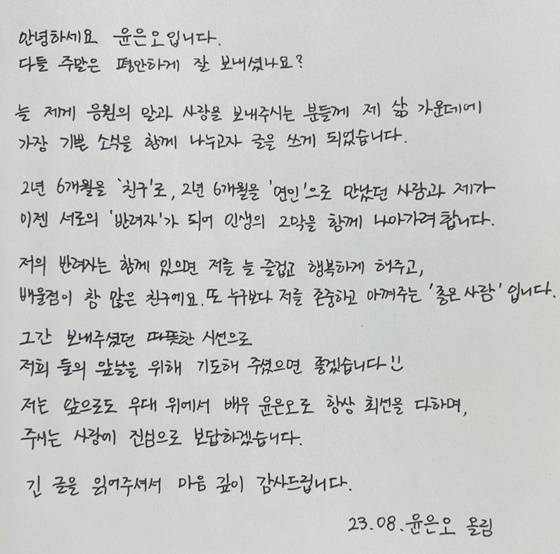 안녕하세요 윤은오입니다.
다들 주말은 평안하게 잘 보내셨나요?
늘 제게 응원의 말과 사랑을 보내주시는 분들께 제 삶 가운데에
가장 기쁜 소식을 함께 나누고자 글을 쓰게 되었습니다.
2년 6개월을 '친구'로, 2년 6개월을 '연인'으로 만났던 사람과 제가
이젠 서로의 '반려자'가 되어 인생의 2막을 함께 나아가려 합니다.
저의 반려자는 함께 있으면 저를 늘 즐겁고 행복하게 해주고,
배울점이 참 많은 친구에요. 또 누구보다 저를 존중하고 아껴주는 '좋은 사람' 입니다.
그간 보내주셨던 따뜻한 시선으로
저희 둘의 앞날을 위해 기도해 주셨으면 좋겠습니다!!
저는 앞으로도 무대 위에서 배우 윤은오로 항상 최선을 다하며,
주시는 사랑에 진심으로 보답하겠습니다.
긴 글을 읽어주셔서 마음 깊이 감사드립니다.
23.08. 윤은오 올림